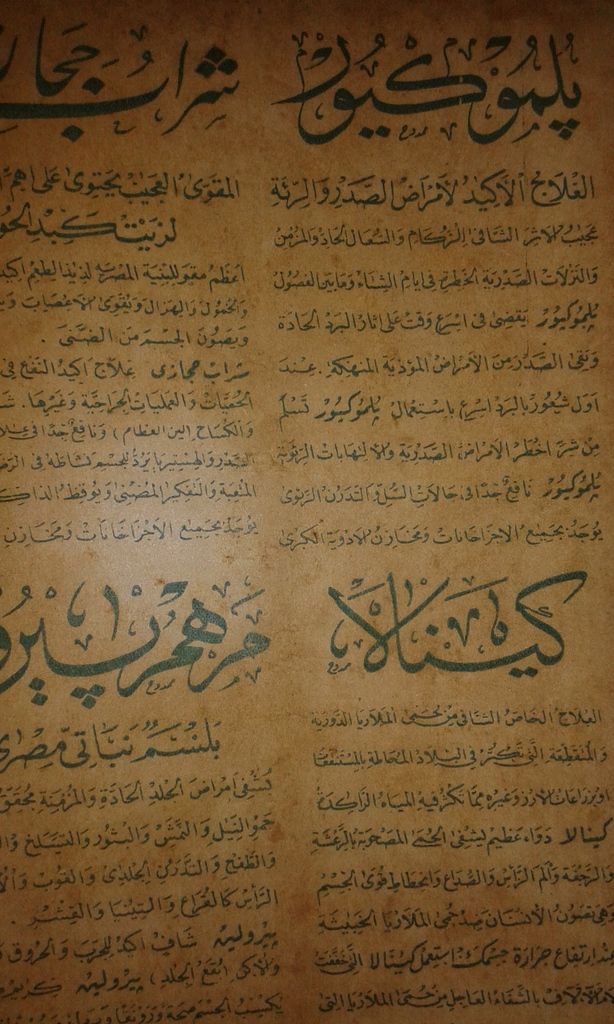 پلموكيور
العلاج الأكيد لأمراض الصدر والرئة
عجيب الأثر الشافى الزكام والسعال الحاد والمزمن
والنزلات الصدرية الخطرة فى ايام الشتاء وما بين الفصول
پلموكيور يقضى فى اسرع وقت على اثار البرد الحادة
ونقى الصدر من الأمراض المؤذية المنهكة. عند
اول شعور بالبرد اسرع باستعمال پلموكيور تسلم
من شر اخطر الامراض الصدرية والالتهابات الرئوية
پلموكيور نافع جدا فى حالات السل والتدرن الرئوى
يوجد بجميع الاجزاخانات ومخازن الادوية الكبرى
شراب حجا
المقوى العجيب يحتوى على اهم
لزيت كبد الحو
اعظم مقو للبنية المصرية لذيذ الطعم اكيد
والخمول والهزال ويقوى الاعصاب
ويصون الجسم من الضنى.
شراب حجازى علاج اكيد النفع فى
الحميات والعمليات الجراحية وغيرها.
والكساح (لين العظام) ونافع جدا فى علا
الصدر والهستيريا يرد للجسم نشاطه فى
المتعبة والتفكير المضنى ويوقظ الذاك
يوجد بجميع الاجزاخانات ومخازن
كينالا
العلاج الخاص الشافى من حمى الملاريا الدورية
والمتقطعة التى تكثر فى البلاد المحاطة بالمستنقعات
او زراعات الارز وغيره مما تكثر فيه المياه الراكدة
كينالا دواء عظيم يشفى الحمى المصحوبة بالرعشة
والرجفة وألم الرأس والصداع وانحطاط قوى الجسم
وهى تصون الأنسان ضد حمى الملاريا الخبيثة
عند ارتفاع حرارة جسمك استعمل كينالا التى خففت
بالشفاء العاجل من حمى الملاريا التى
مرهم پيرو
بلسم نباتى مصرى
يشفى امراض الجلد الحادة والمزمنة محقق
حمو النيل والنمش والبثور والتسلخ
والطفح والتدرن الجلدى والقوب
الرأس كالقراع والتينيا والقشر.
پيرولين شاف اكيد للجرب والحروق
(بقع الجلد) پيرولين
يكسب الجسم صحة ورونقا